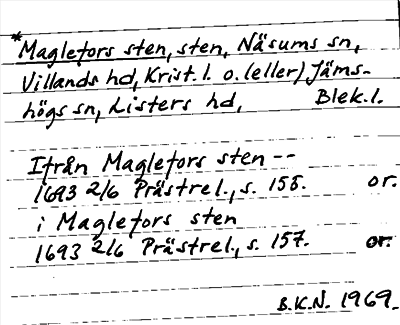 *Maglefors sten, sten, Näsums sn,
Villands hd, Krist. l. o. (eller) Jäms-
högs sn, Listers hd, Blek. l.
Ifrån Maglefors sten --
1693 2/6 Prästrel., s. 158. or.
i Maglefors sten
1693 2/6 Prästrel., s. 157. or.
B.K.N. 1969.